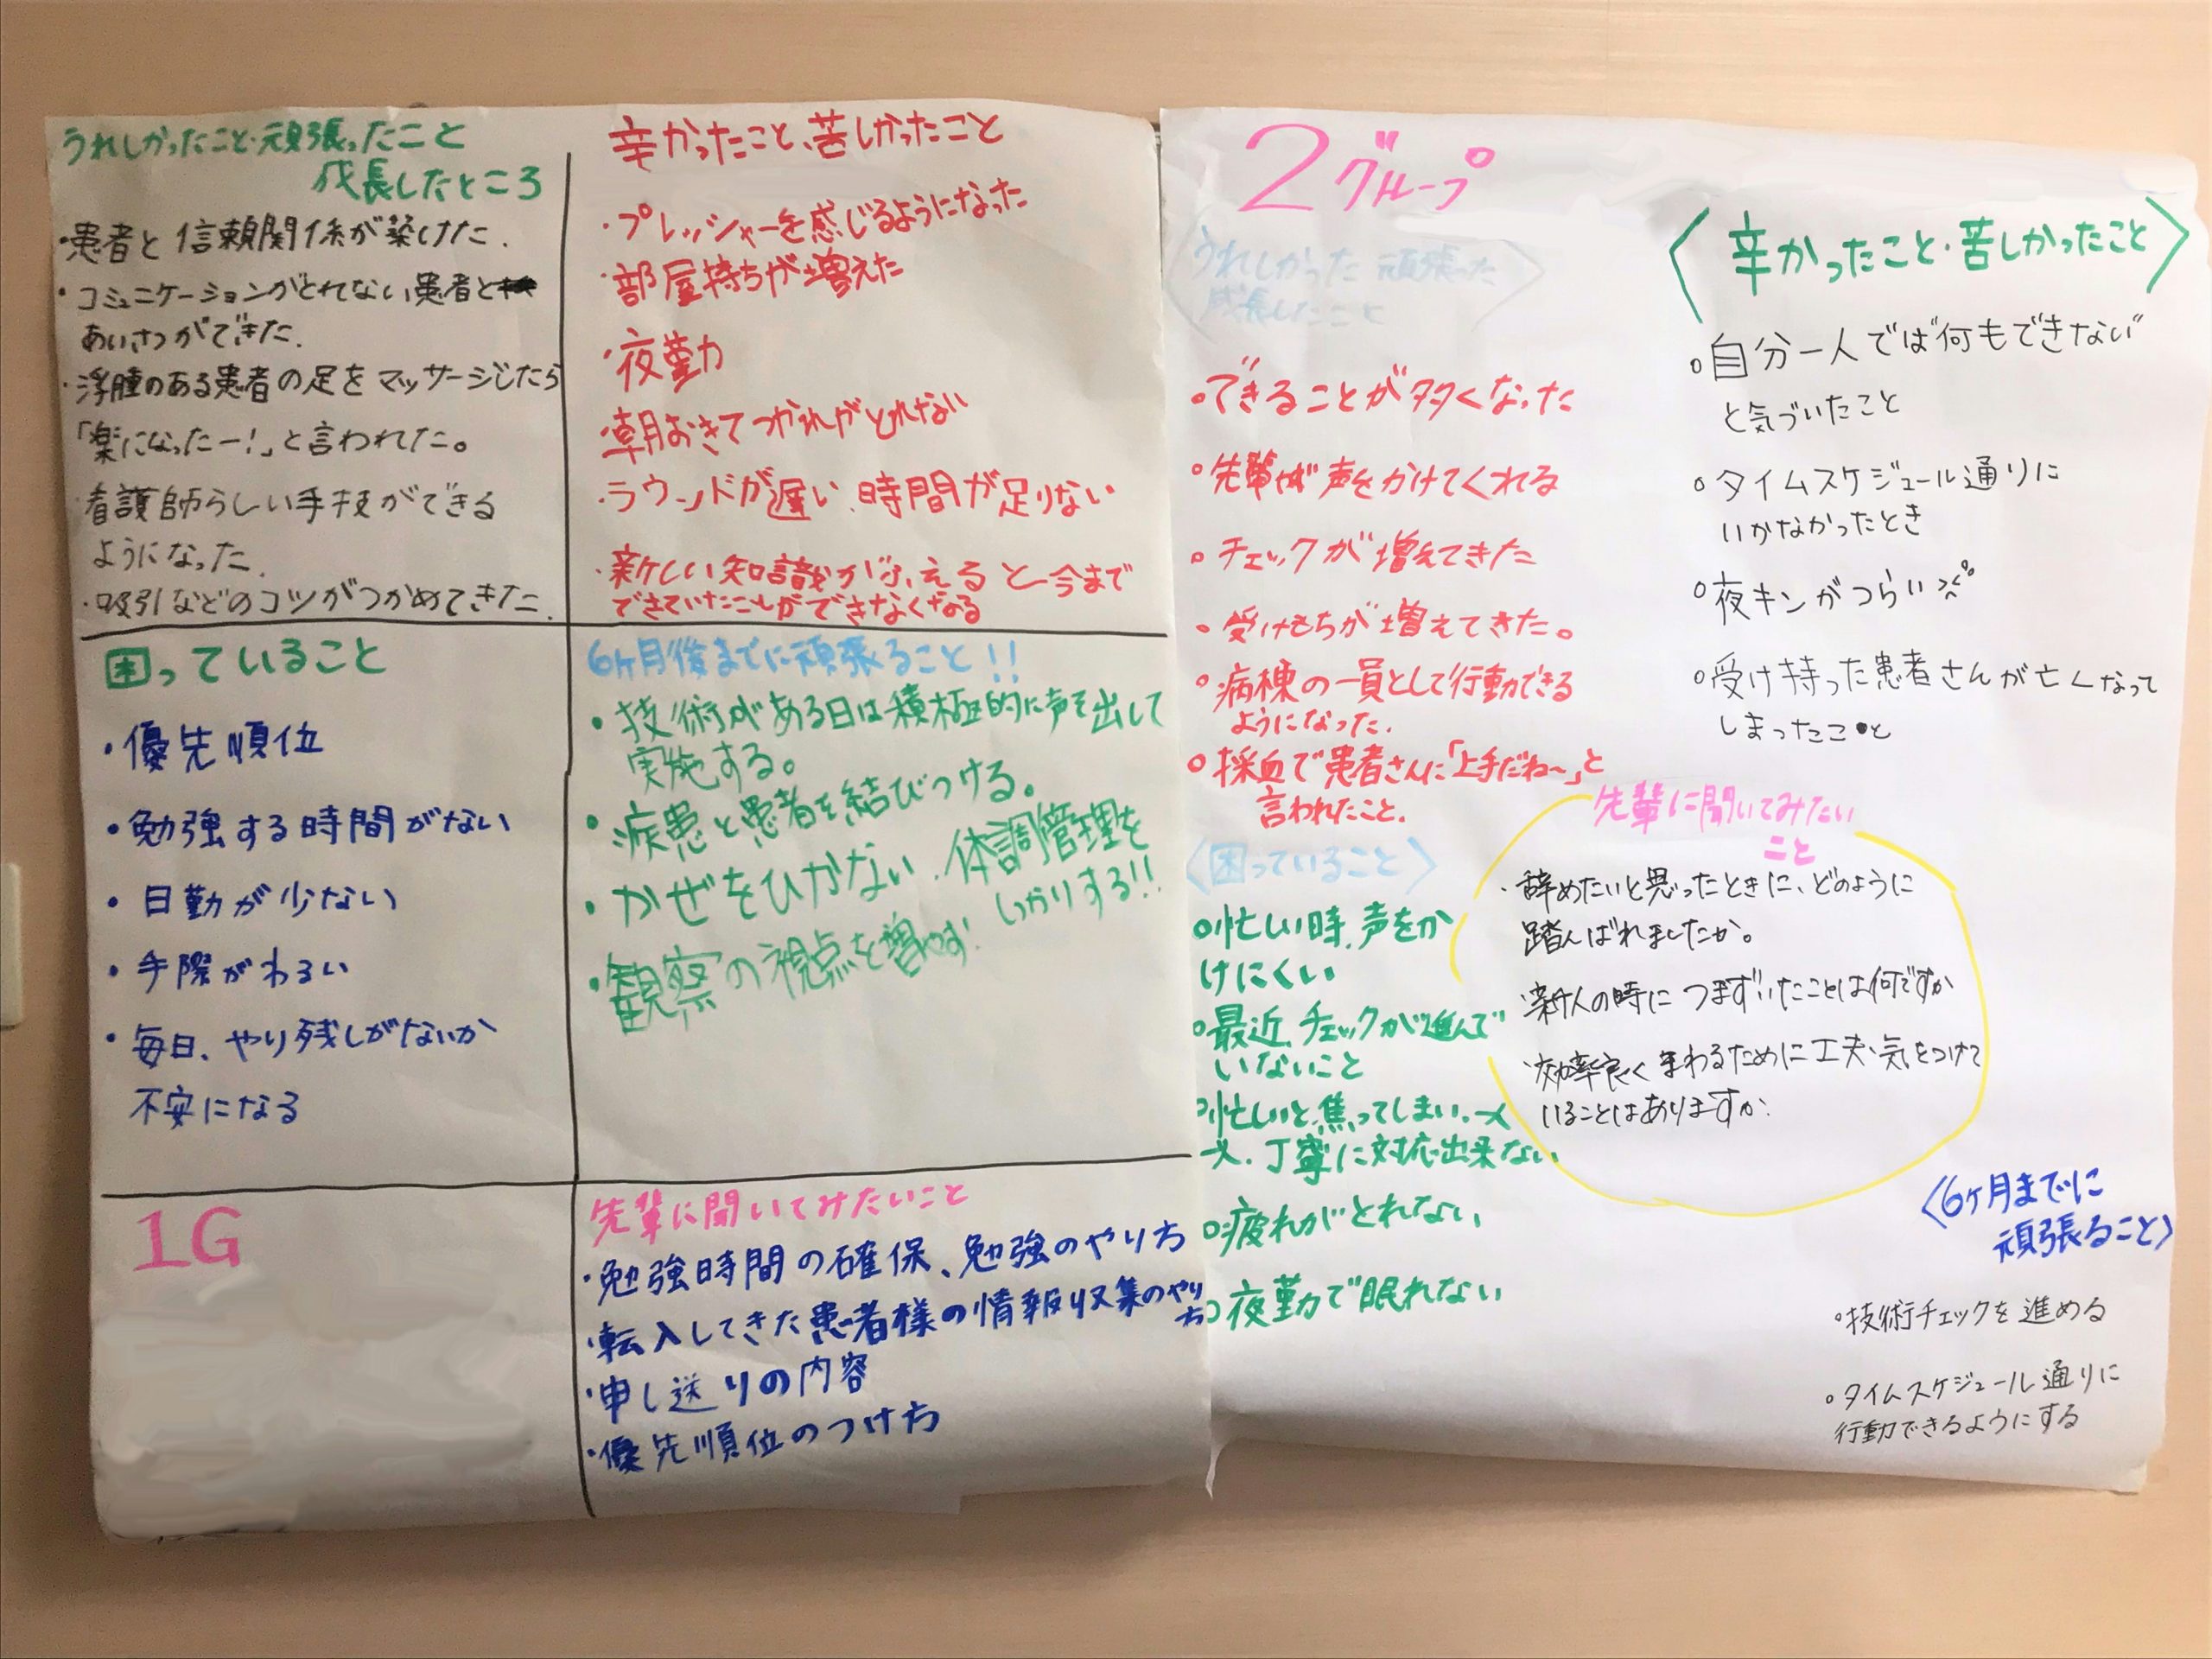 うれしかったこと・頑張ったこと
成長したところ
・患者と信頼関係が築けた.
・コミュニケーションがとれない患者と
あいさつができた.
・浮腫のある患者の足をマッサージしたら
「楽になったー!」と言われた。
・看護師らしい手技ができる
ようになった.
・吸引などのコツがつかめてきた.
辛かったこと、苦しかったこと
・プレッシャーを感じるようになった
・部屋持ちが増えた
・夜勤
・朝おきてつかれがとれない
・ラウンドが遅い、時間が足りない
・新しい知識がふえると今まで
できていたことができなくなる
困っていること
・優先順位
・勉強する時間がない
・日勤が少ない
・手際がわるい
・毎日、やり残しがないか
不安になる
6ヶ月後までに頑張ること!!
・技術がある日は積極的に声を出して
実施する。
・疾患と患者を結びつける。
・かぜをひかない.体調管理を
しっかりする!!
・観察の視点を増やす.
1G
先輩に聞いてみたいこと
・勉強時間の確保、勉強のやり方
・転入してきた患者様の情報収集のやり
方
・申し送りの内容
・優先順位のつけ方
2グループ
〈うれしかった 頑張った
成長したこと〉
・できることが多くなった
○先輩が声をかけてくれる
○チェックが増えてきた
・受けもちが増えてきた。
○病棟の一員として行動できる
ようになった.
○採血で患者さんに「上手だね〜」と
言われたこと.
〈困っていること〉
○忙しい時、声をか
けにくい
○最近、チェックが進んで
いないこと
○忙しいと、焦ってしまい、一人
一人、丁寧に対応出来ない
○疲れがとれない
○夜勤で眠れない
〈辛かったこと・苦しかったこと〉
○自分一人では何もできない
と気づいたこと
○タイムスケジュール通りに
いかなかったとき
○夜キンがつらい
○受け持った患者さんが亡くなって
しまったこと
先輩に聞いてみたい
こと
・辞めたいと思ったときに、どのように
踏んばれましたか。
・新人の時につまずいたことは何ですか
・効率良くまわるために工夫・気をつけて
いることはありますか.
〈6ヶ月までに
頑張ること〉
○技術チェックを進める
○タイムスケジュール通りに
行動できるようにする